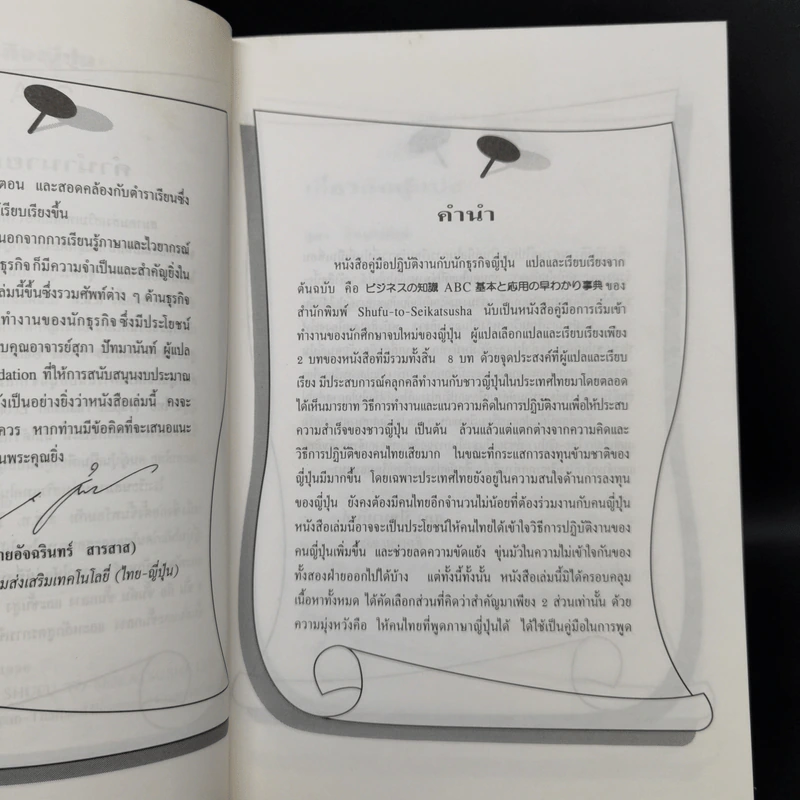 ตอน และสอดคล้องกับตำราเรียนซึ่ง
เรียบเรียงขึ้น
นอกจากการเรียนรู้ภาษาและไวยากรณ์
ธุรกิจ ก็มีความจำเป็นและสำคัญยิ่งใน
เล่มนี้ขึ้นซึ่งรวมศัพท์ต่าง ๆ ด้านธุรกิจ
ทำงานของนักธุรกิจ ซึ่งมีประโยชน์
บคุณอาจารย์สุภา ปัทมานันท์ ผู้แปล
dation ที่ให้การสนับสนุนงบประมาณ
ังเป็นอย่างยิ่งว่าหนังสือเล่มนี้ คงจะ
ควร หากท่านมีข้อคิดที่จะเสนอแนะ
นพระคุณยิ่ง
ายอัจฉรินทร์ สารสาส)
มส่งเสริมเทคโนโลยี (ไทย-ญี่ปุ่น)
คำนำ
หนังสือคู่มือปฏิบัติงานกับนักธุรกิจญี่ปุ่น แปลและเรียบเรียงจาก
ต้นฉบับ คือ ビジネスの知識 ABC 基本と応用の早わかり事典 ของ
สำนักพิมพ์ Shufu-to-Seikatsusha นับเป็นหนังสือคู่มือการเริ่มเข้า
ทำงานของนักศึกษาจบใหม่ของญี่ปุ่น ผู้แปลเลือกแปลและเรียบเรียงเพียง
2 บทของหนังสือที่มีรวมทั้งสิ้น 8 บท ด้วยจุดประสงค์ที่ผู้แปลและเรียบ
เรียง มีประสบการณ์คลุกคลีทำงานกับชาวญี่ปุ่นในประเทศไทยมาโดยตลอด
ได้เห็นมารยาท วิธีการทำงานและแนวความคิดในการปฏิบัติงานเพื่อให้ประสบ
ความสำเร็จของชาวญี่ปุ่น เป็นต้น ล้วนแล้วแต่แตกต่างจากความคิดและ
วิธีการปฏิบัติของคนไทยเสียมาก ในขณะที่กระแสการลงทุนข้ามชาติของ
ญี่ปุ่นมีมากขึ้น โดยเฉพาะประเทศไทยยังอยู่ในความสนใจด้านการลงทุน
ของญี่ปุ่น ยังคงต้องมีคนไทยอีกจำนวนไม่น้อยที่ต้องร่วมงานกับคนญี่ปุ่น
หนังสือเล่มนี้อาจจะเป็นประโยชน์ให้คนไทยได้เข้าใจวิธีการปฏิบัติงานของ
คนญี่ปุ่นเพิ่มขึ้น และช่วยลดความขัดแย้ง ขุ่นมัวในความไม่เข้าใจกันของ
ทั้งสองฝ่ายออกไปได้บ้าง แต่ทั้งนี้ทั้งนั้น หนังสือเล่มนี้มิได้ครอบคลุม
เนื้อหาทั้งหมด ได้คัดเลือกส่วนที่คิดว่าสำคัญมาเพียง 2 ส่วนเท่านั้น ด้วย
ความมุ่งหวังคือ ให้คนไทยที่พูดภาษาญี่ปุ่นได้ ได้ใช้เป็นคู่มือในการพูด